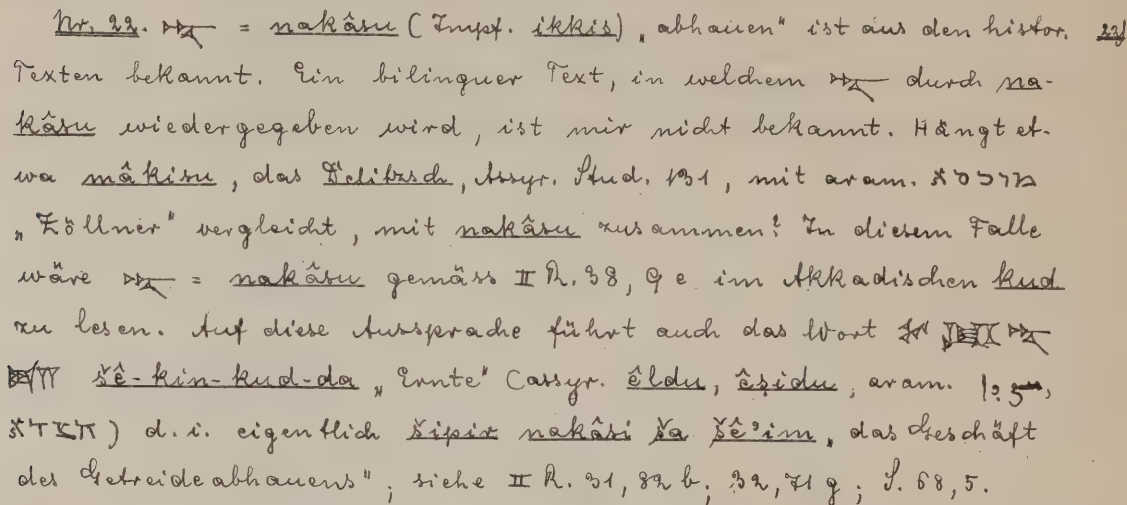 Nr. 22. 𒋻 = nakâsu (Impf. ikkis) „abhauen" ist aus den histor.
Texten bekannt. Ein bilinguer Text, in welchem 𒋻 durch na-
kâsu wiedergegeben wird, ist mir nicht bekannt. Hängt et-
wa mâkisu, das Delitzsch, Assyr. Stud. 131, mit aram. מוכסא
„Zöllner" vergleicht, mit nakâsu zusammen? In diesem Falle
wäre 𒋻 = nakâsu gemäss II R. 38, 9 e im Akkadischen kud
zu lesen. Auf diese Aussprache führt auch das Wort 𒊺 𒆥 𒋻
𒁕 šê-kin-kud-da „Ernte" (assyr. êldu, êṣidu, aram.
חצדא) d. i. eigentlich šipir nakâsi ša šê'im „das Geschäft
des Getreideabhauens"; siehe II R. 31, 82 b; 32, 71 g; S. 68, 5.